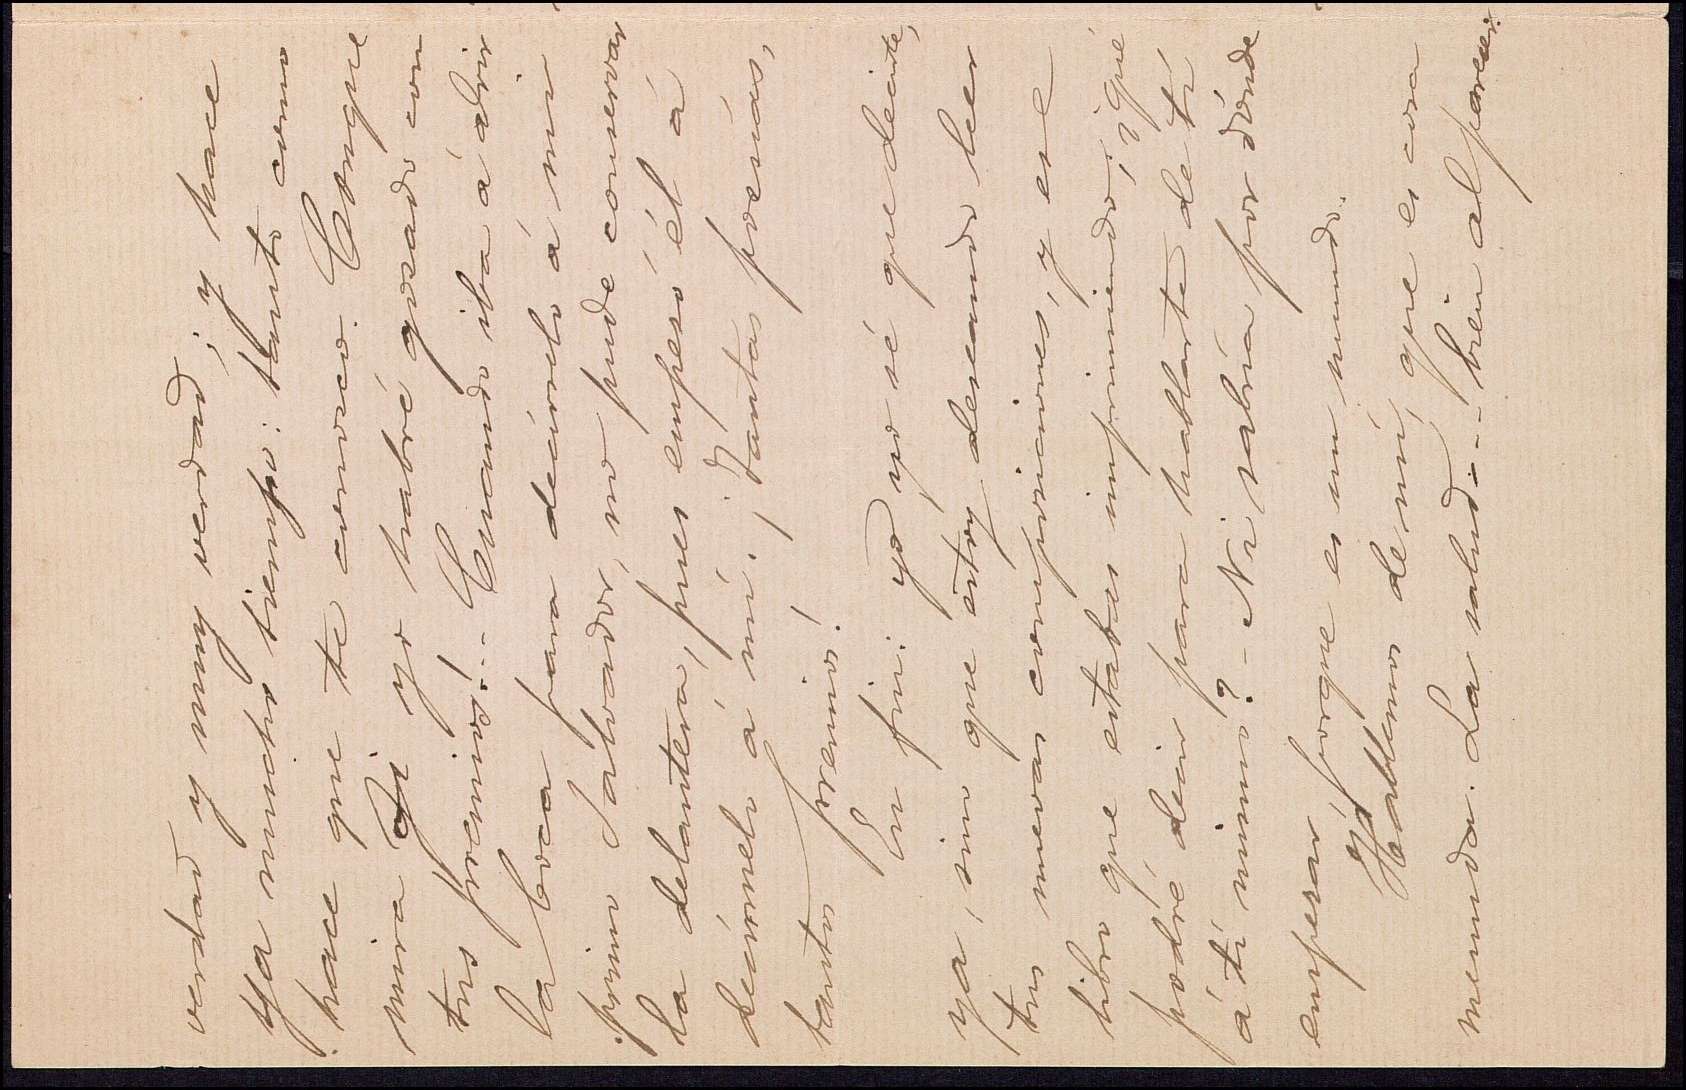 verdad y muy verdad; y hace
ya mucho tiempo: tanto como
hace que te conozco. Conque
mira si yo habré gozado con
tus premios!.. Cuando iba á abrir
la boca para decírselo á mi
primo Salvador, no pude conservar
la delantera, pues empesó él á
decírmelo á mí. ¡Tantas poesías,
tantos premios!
En fin: yo no sé que decirte,
ya, sino que estoy deseando leer
tus nuevas composiciones, y ese
libro que estabas imprimiendo; ¿qué
podré decir para hablarte de tí
á tí mismo? - Ni sabría por dónde
empesar porque es un mundo.
Hablemos de mí, que es cosa
menuda. La salud... bien al parecer.